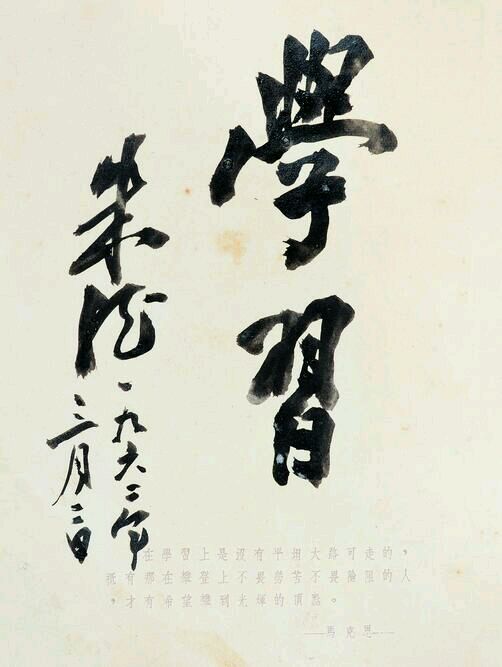 學習
朱德
一九六二年
三月二日
在學習上是沒有平坦大路可走的，
祇有那在攀登上不畏勞苦不畏險阻的人
，才有希望攀到光輝的頂點。
——馬克思——